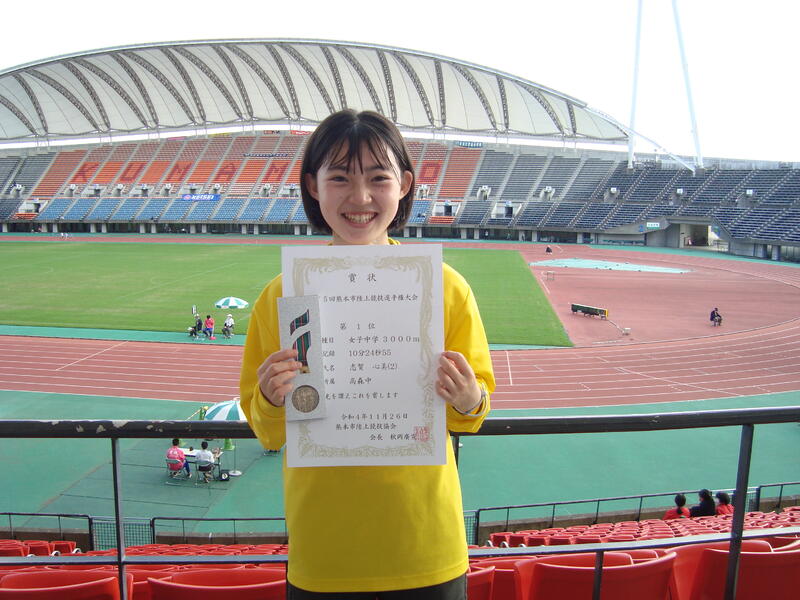 KUMAMOTO
賞状
5回熊本市陸上競技選手権大会
第 1 位
種目 女子中学3000m
記録 10分24秒55
氏名 志賀 心美(2)
所属 高森中
栄を讃えこれを賞します
令和4年11月26日
熊本市陸上競技協会
会長 秋岡廣宣